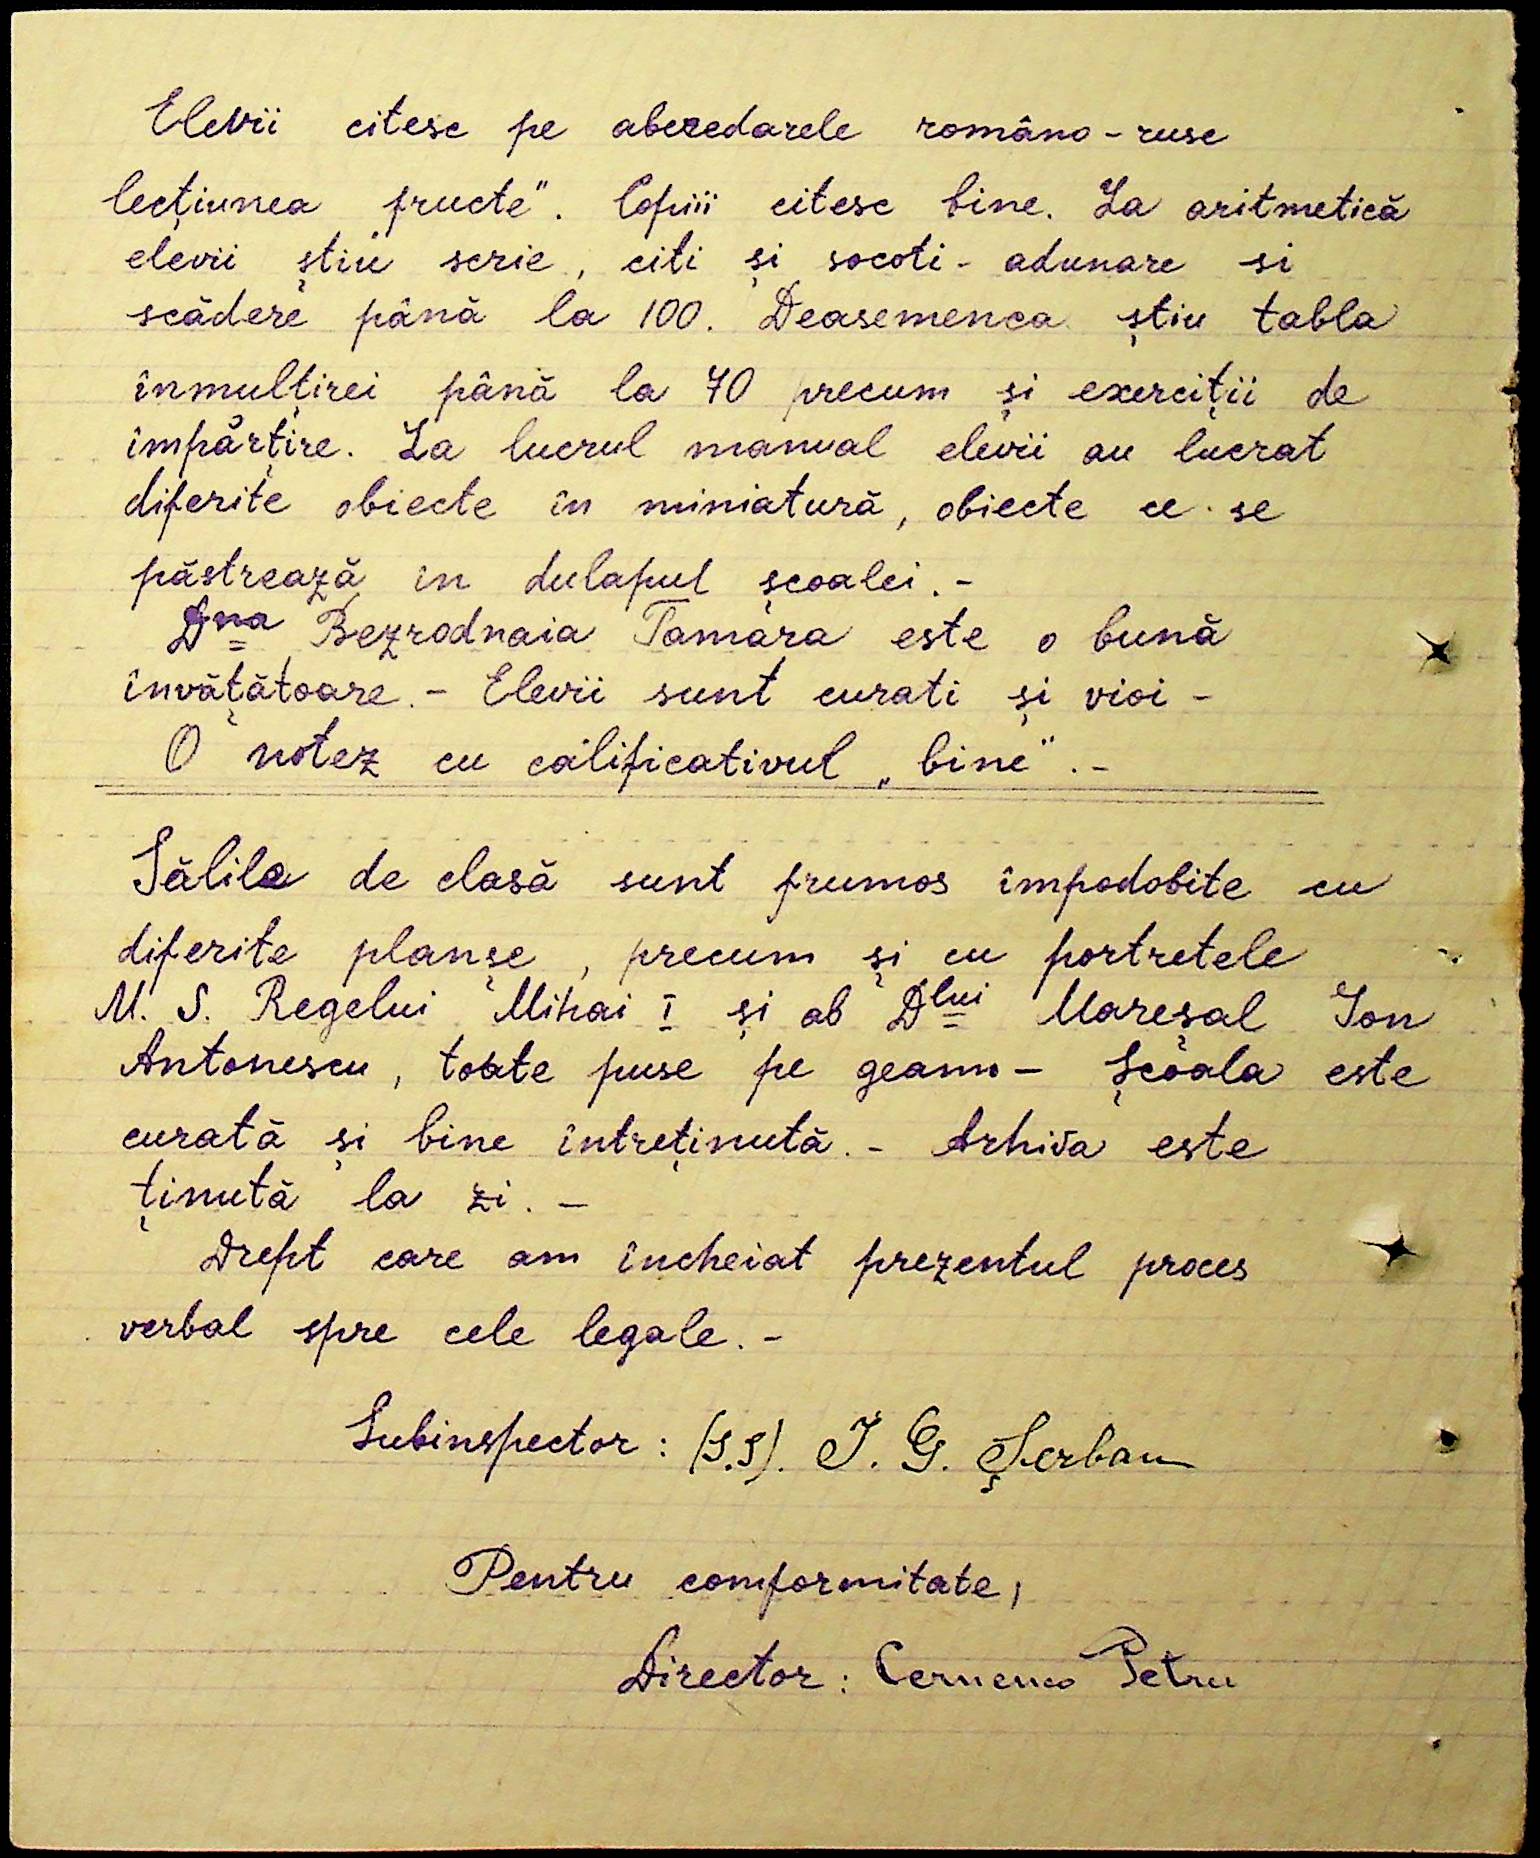 Elevii citesc pe abecedarele româno-ruse
lecțiunea fructe". Copiii citesc bine. La aritmetică
elevii știu scrie, citi și socoti - adunare si
scădere până la 100. Deasemenea știu tabla
înmulțirei până la 70 precum și exerciții de
împărțire. La lucrul manual elevii au lucrat
diferite obiecte în miniatură, obiecte ce se
păstrează in dulapul școalei.-
Dna Bezrodnaia Tamara este o bună
învățătoare.- Elevii sunt curati și vioi -
O notez cu calificativul „bine".-
Sălile de clasă sunt frumos împodobite cu
diferite planșe, precum și cu portretele
M. S. Regelui Mihai I și al Dlui Mareșal Ion
Antonescu, toate puse pe geam - Școala este
curată și bine întreținută.- Arhiva este
ținută la zi.-
Drept care am încheiat prezentul proces
verbal spre cele legale.-
Subinspector: (S.S). I. G. Șerban
Pentru comformitate,
Director: Cernenco Petru